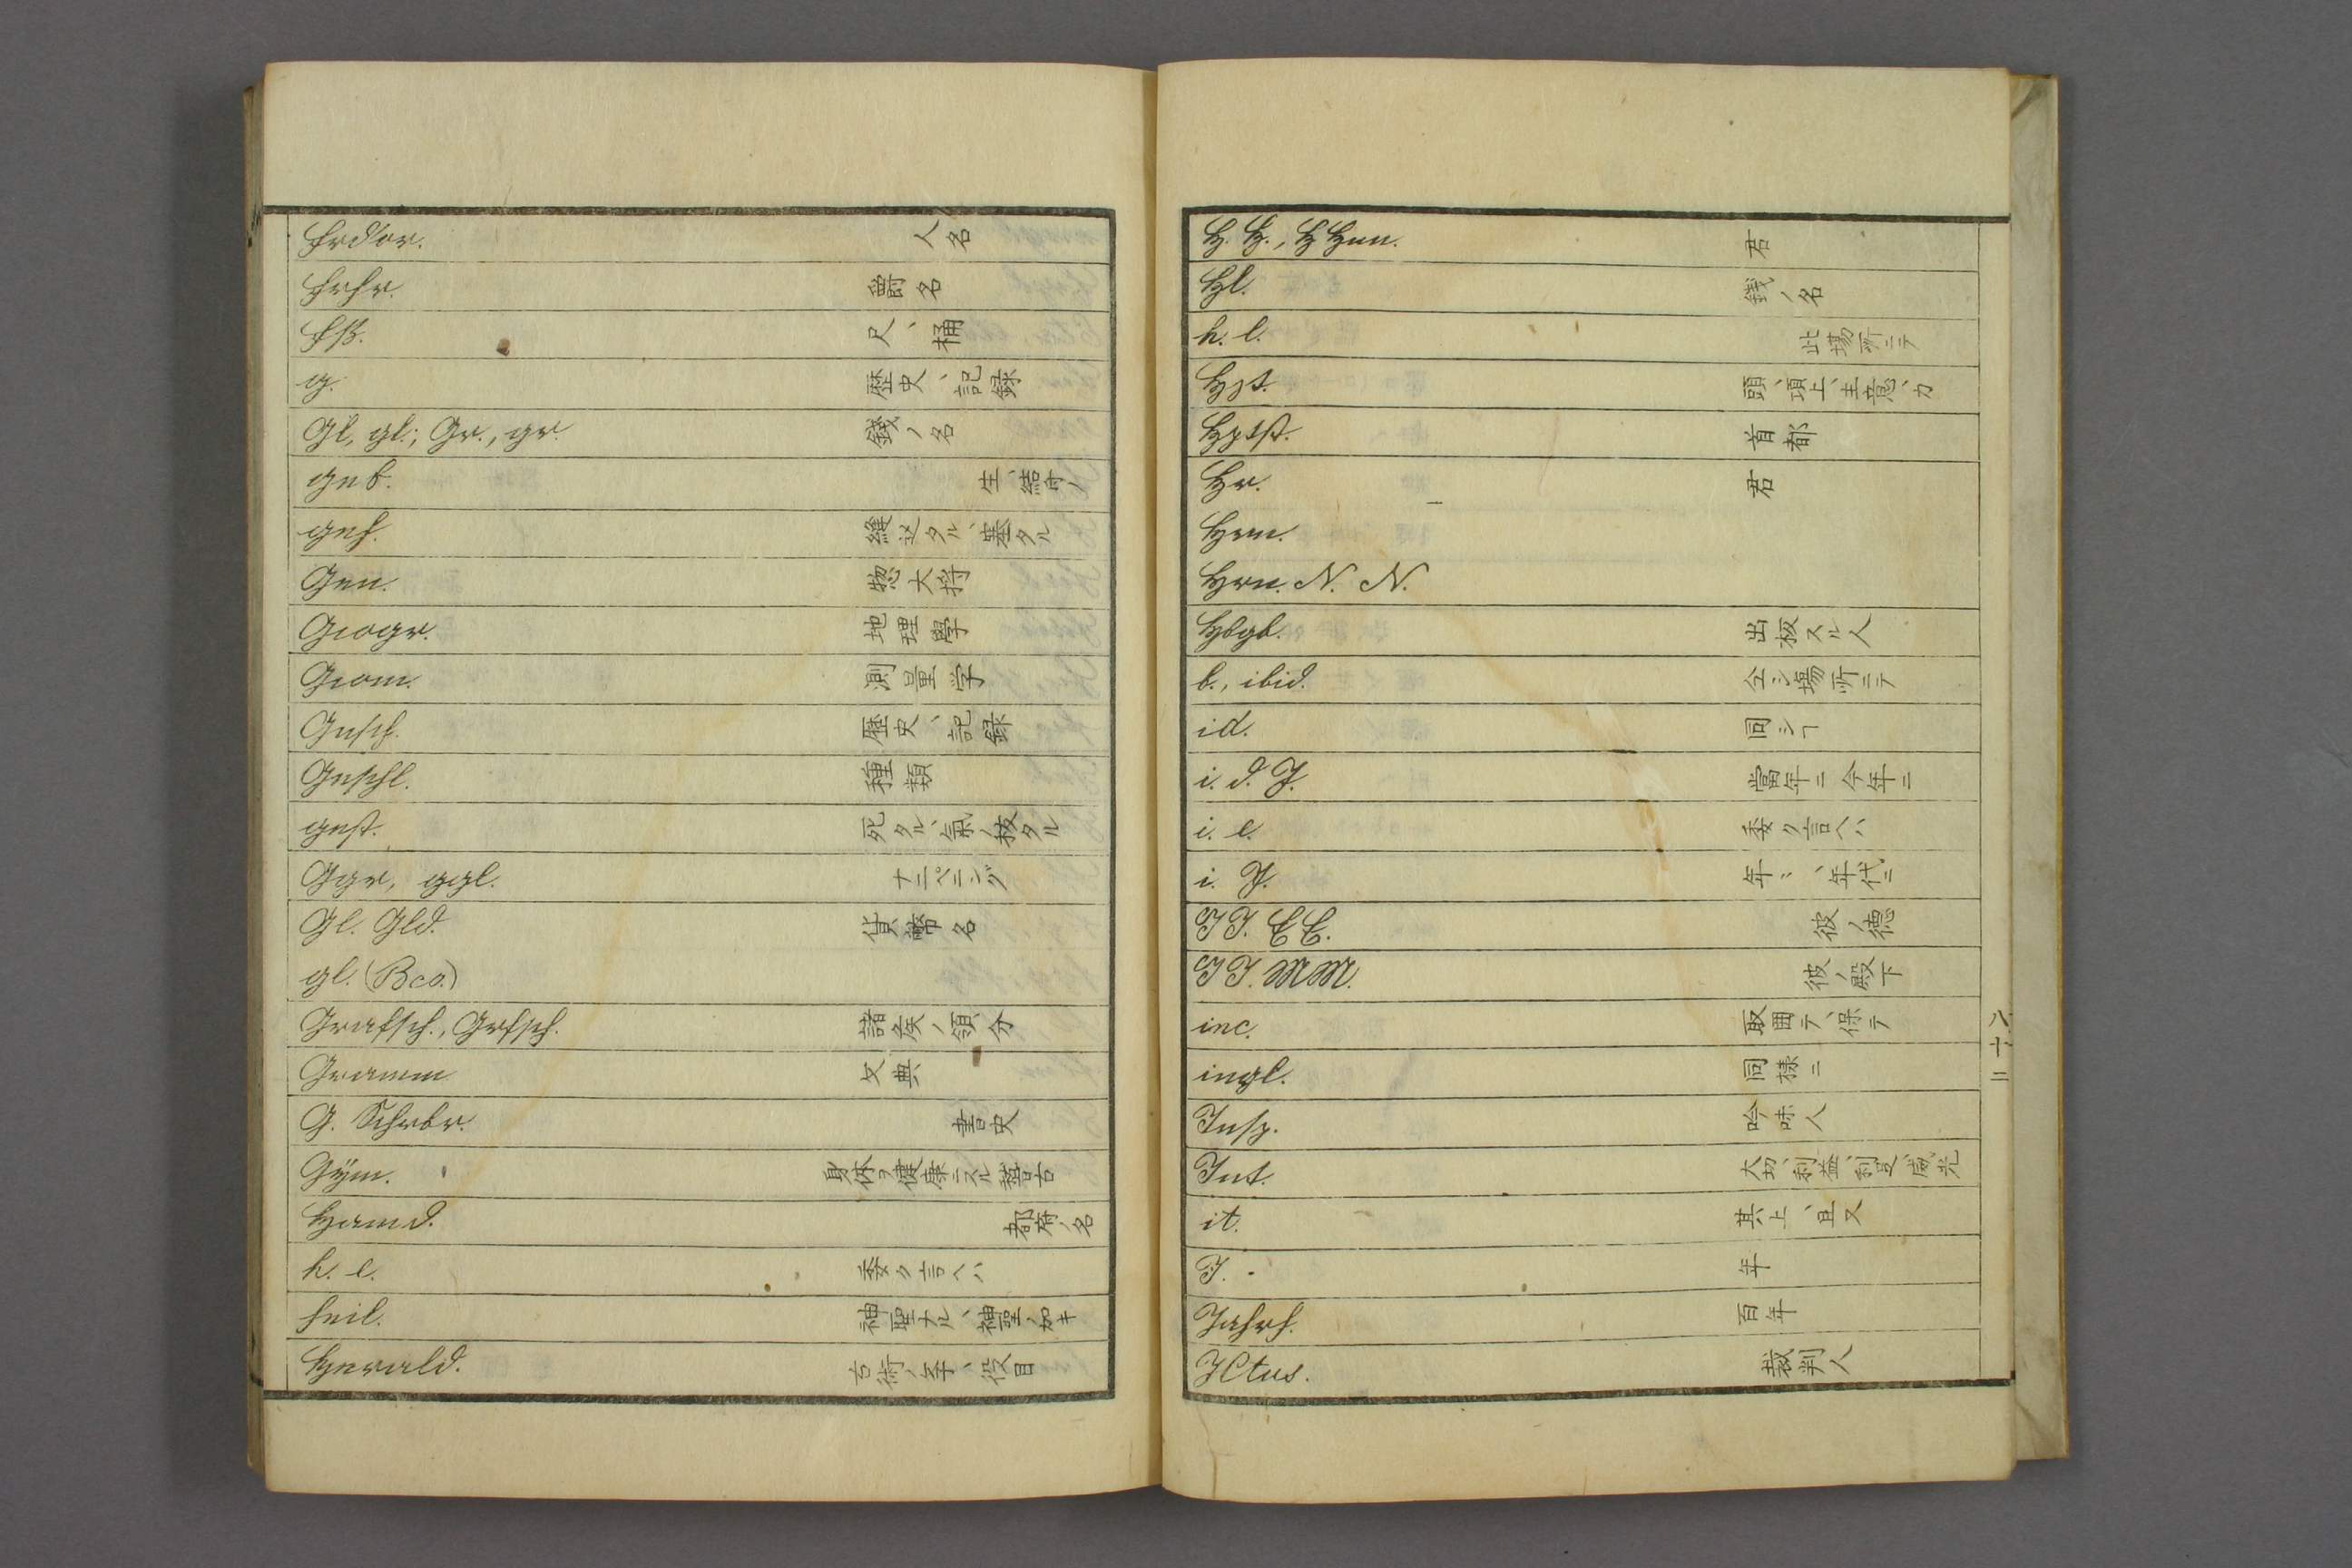 Frd'or. 人名
Frhr. 爵名
Fß. 尺、桶
g. 歴史、記録
Gl, gl.; Gr., gr. 錢ノ名
geb. 生、結
gef. 縫込タル、塞タル
Gen. 惣大将
Geogr. 地理學
Geom. 測量学
Gesch. 歴史、記録
Geschl. 種類
gest. 死タル、氣ノ抜タル
Ggr, ggl. ナニペニング
Gl. Gld. 貨幣名
gl. (Bco.)
Grafsch., Grfsch. 諸矦ノ領分
Gramm 文典
G. Schrbr. 書史
Gÿm. 身体ヲ健康ニスル
Hamb. 都府ノ名
h. e. 委ク言ヘハ
heil. 神聖ナル、神聖ノ如キ
Herald. 古術ノ、役目
H. H., H Hen. 君
Hl. 錢ノ名
h. l. 此場所ニテ
Hpt. 頭、項上、主意、カ
Hptst. 首都
Hr. 君
Hrm.
Hrn. N. N.
Hbgb. 出板スル人
b., ibid. 仝シ場所ニテ
id. 同シヿ
i. d. J. 當年ニ 今年ニ
i. e. 委ク言ヘハ
i. J. 年ニ、年代ニ
II. EE. 彼ノ德
II. MM. 彼ノ殿下
inc. 取囲テ、保テ
ingl. 同様ニ
Insp. 吟味人
Int. 大切、利益、利足、威光
it. 其上、且又
J. 年
Jahrh. 百年
JCtus. 裁判人
八十二